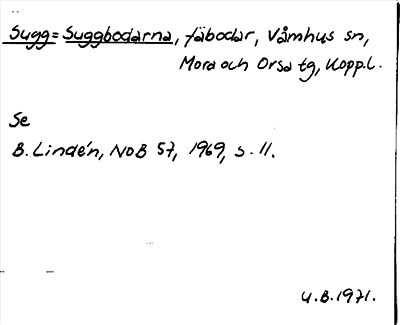 Sugg= Suggbodarna, fäbodar, Våmhus sn,
Mora och Orsa tg, Kopp.l.
Se
B. Lindén, NoB 57, 1969, s. 11.
U.B. 1971.